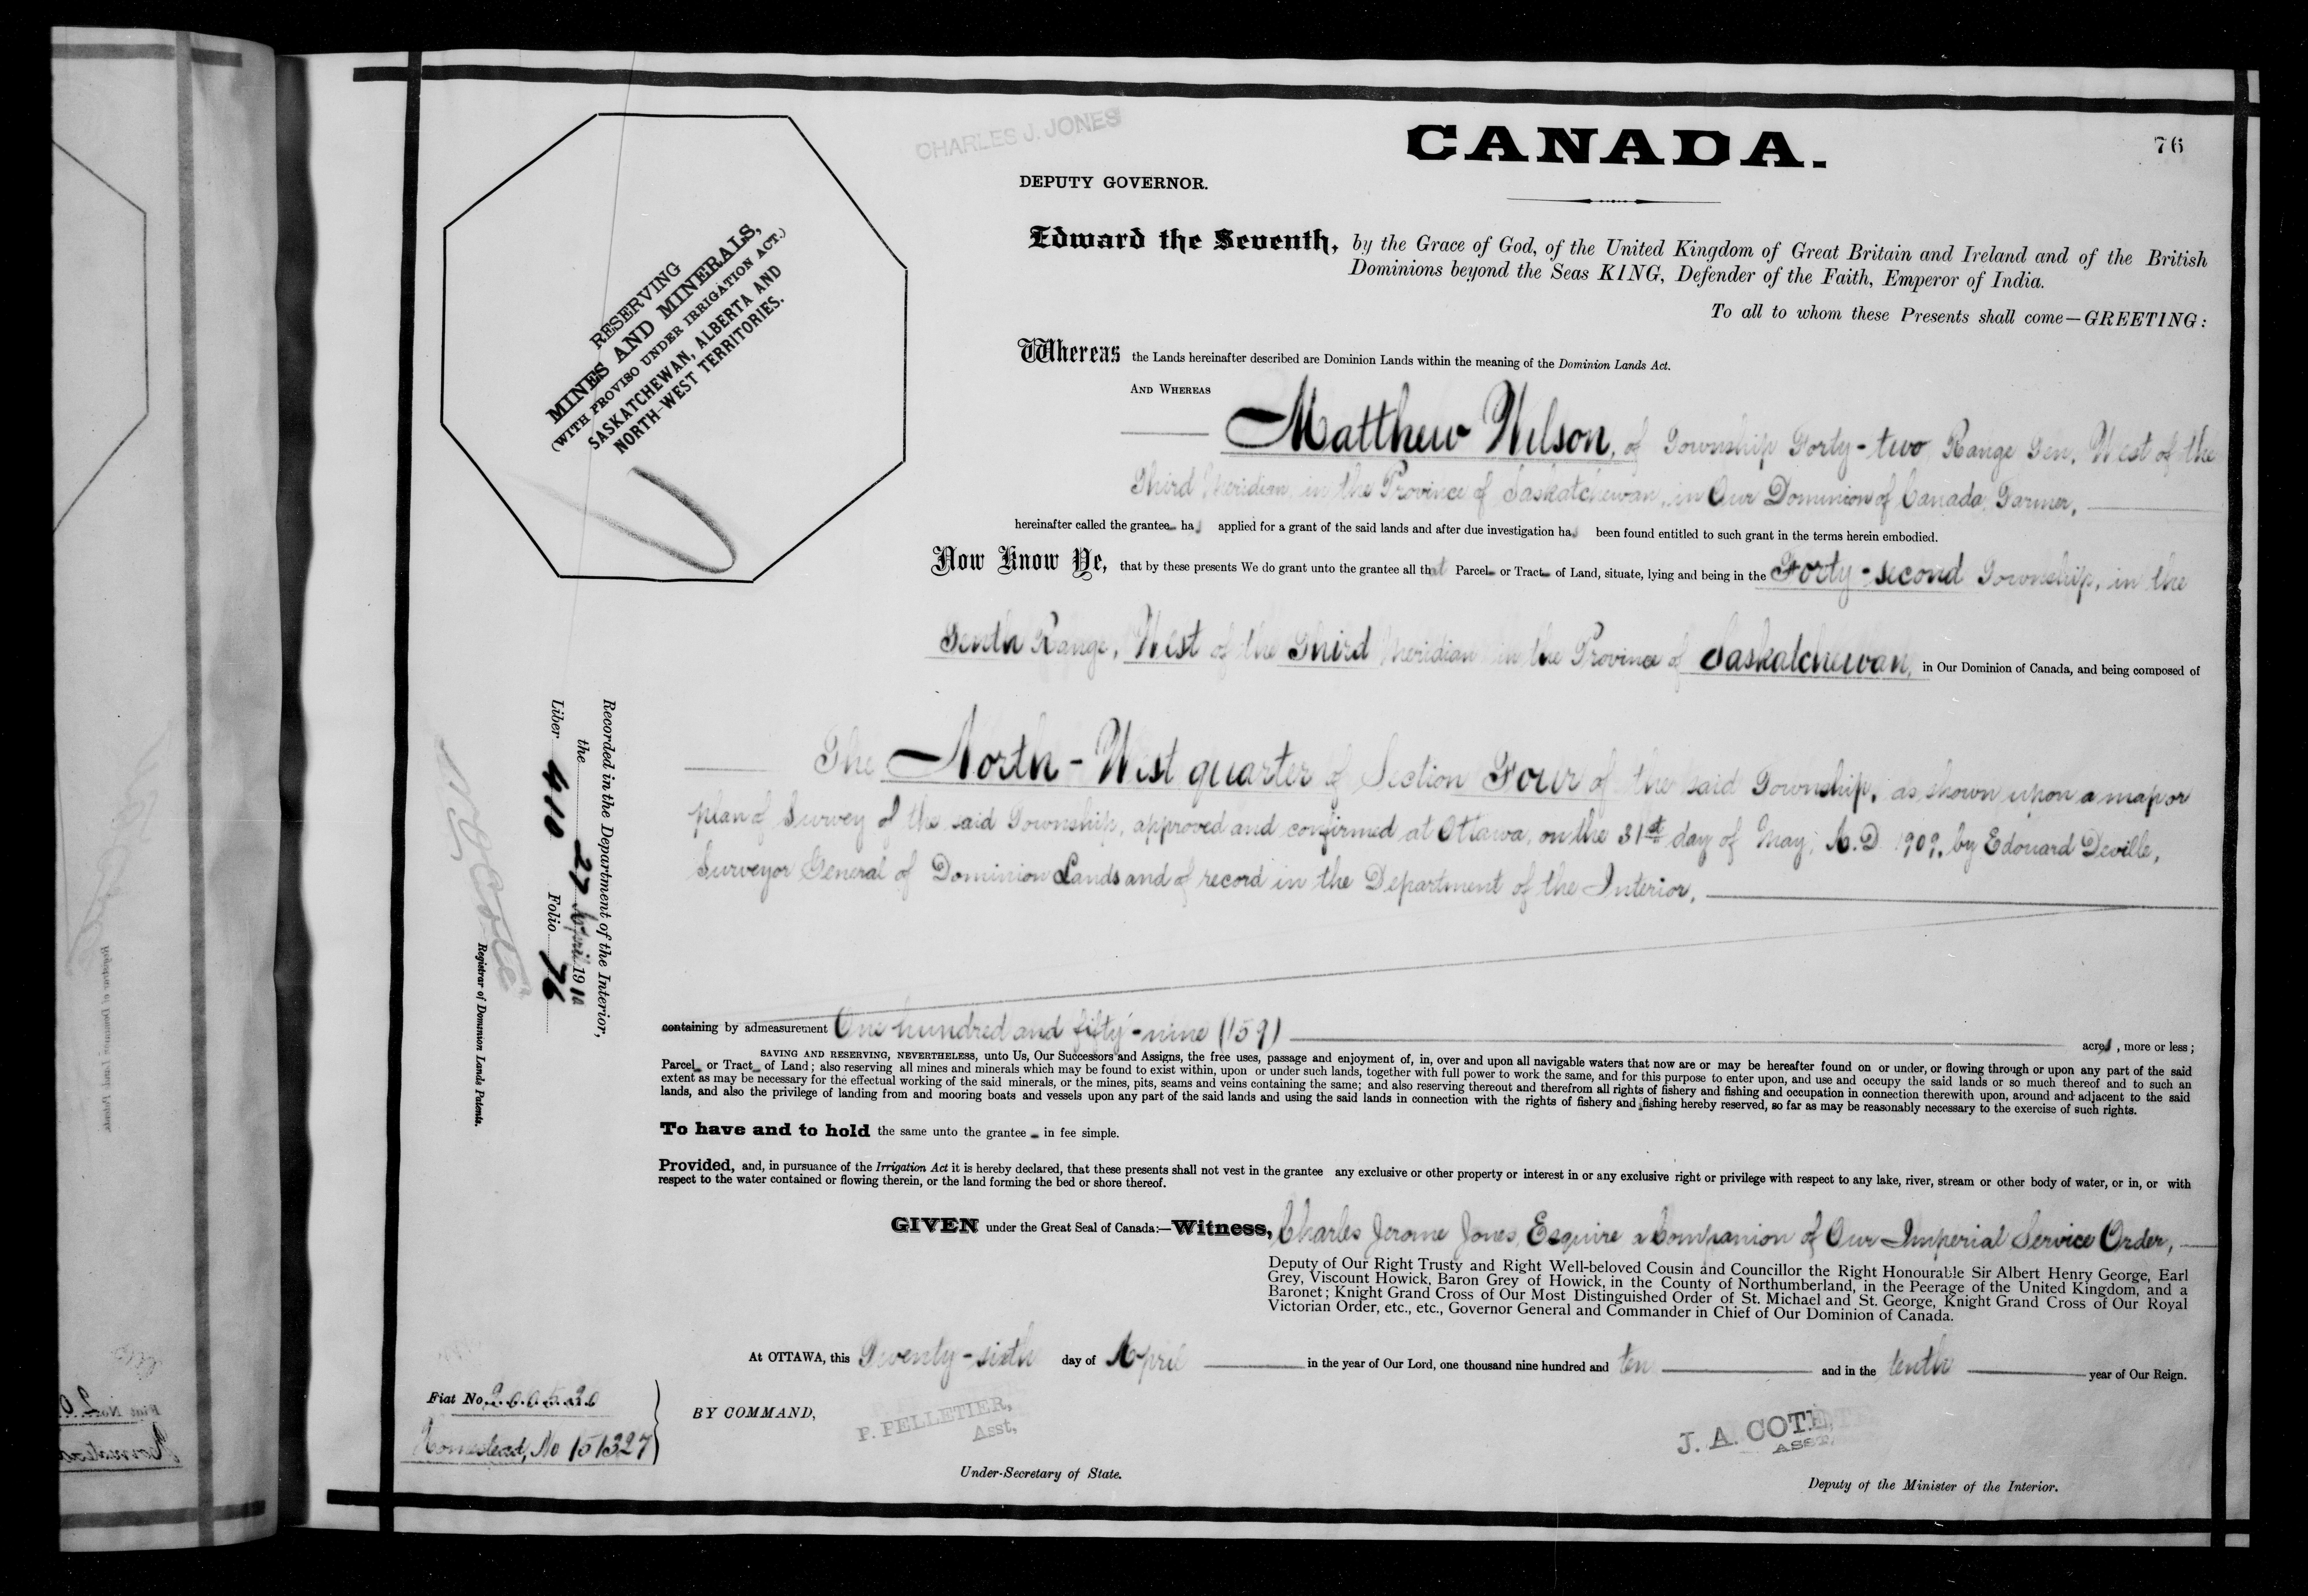 CHARLES J. JONES
CANADA.
76
DEPUTY GOVERNOR.
RESERVING
MINES AND MINERALS,
(WITH PROVISO UNDER IRRIGATION ACT.)
SASKATCHEWAN, ALBERTA AND
NORTH-WEST TERRITORIES.
Edward the Seventh, by the Grace of God, of the United Kingdom of Great Britain and Ireland and of the British
Dominions beyond the Seas KING, Defender of the Faith, Emperor of India.
To all to whom these Presents shall come—GREETING:
Whereas the Lands hereinafter described are Dominion Lands within the meaning of the Dominion Lands Act.
AND WHEREAS
Matthew Wilson, of Township Forty-two, Range Ten, West of the
Third Meridian, in the Province of Saskatchewan, in Our Dominion of Canada, Farmer,
hereinafter called the grantee has applied for a grant of the said lands and after due investigation has been found entitled to such grant in the terms herein embodied.
Now Know Ye, that by these presents We do grant unto the grantee all that Parcel or Tract of Land, situate, lying and being in the Forty-second Township, in the
Tenth Range, West of the Third Meridian in the Province of Saskatchewan, in Our Dominion of Canada, and being composed of
The North-West quarter of Section Four of the said Township, as shown upon a map or
plan of Survey of the said Township, approved and confirmed at Ottawa, on the 31st day of May, A.D. 1909, by Edouard Deville,
Surveyor General of Dominion Lands and of record in the Department of the Interior.
containing by admeasurement One hundred and fifty-nine (159) acres, more or less;
SAVING AND RESERVING, NEVERTHELESS, unto Us, Our Successors and Assigns, the free uses, passage and enjoyment of, in, over and upon all navigable waters that now are or may be hereafter found on or under, or flowing through or upon any part of the said
Parcel or Tract of Land; also reserving all mines and minerals which may be found to exist within, upon or under such lands, together with full power to work the same, and for this purpose to enter upon, and use and occupy the said lands or so much thereof and to such an
extent as may be necessary for the effectual working of the said minerals, or the mines, pits, seams and veins containing the same; and also reserving thereout and therefrom all rights of fishery and fishing and occupation in connection therewith upon, around and adjacent to the said
lands, and also the privilege of landing from and mooring boats and vessels upon any part of the said lands and using the said lands in connection with the rights of fishery and fishing hereby reserved, so far as may be reasonably necessary to the exercise of such rights.
To have and to hold the same unto the grantee in fee simple.
Provided, and, in pursuance of the Irrigation Act it is hereby declared, that these presents shall not vest in the grantee any exclusive or other property or interest in or any exclusive right or privilege with respect to any lake, river, stream or other body of water, or in, or with
respect to the water contained or flowing therein, or the land forming the bed or shore thereof.
GIVEN under the Great Seal of Canada:—Witness, Charles Jerome Jones, Esquire a Companion of Our Imperial Service Order,
Deputy of Our Right Trusty and Right Well-beloved Cousin and Councillor the Right Honourable Sir Albert Henry George, Earl
Grey, Viscount Howick, Baron Grey of Howick, in the County of Northumberland, in the Peerage of the United Kingdom, and a
Baronet; Knight Grand Cross of Our Most Distinguished Order of St. Michael and St. George, Knight Grand Cross of Our Royal
Victorian Order, etc., etc., Governor General and Commander in Chief of Our Dominion of Canada.
At OTTAWA, this Twenty-sixth day of April in the year of Our Lord, one thousand nine hundred and ten and in the tenth year of Our Reign.
BY COMMAND,
P. PELLETIER,
Asst,
Under-Secretary of State.
J. A. COTE
ASST.
Deputy of the Minister of the Interior.
Fiat No. 200520
Homestead, No 151327
Recorded in the Department of the Interior,
the 27 April 1910
Liber 410 Folio 76
N. O. Coté
Registrar of Dominion Lands Patents.